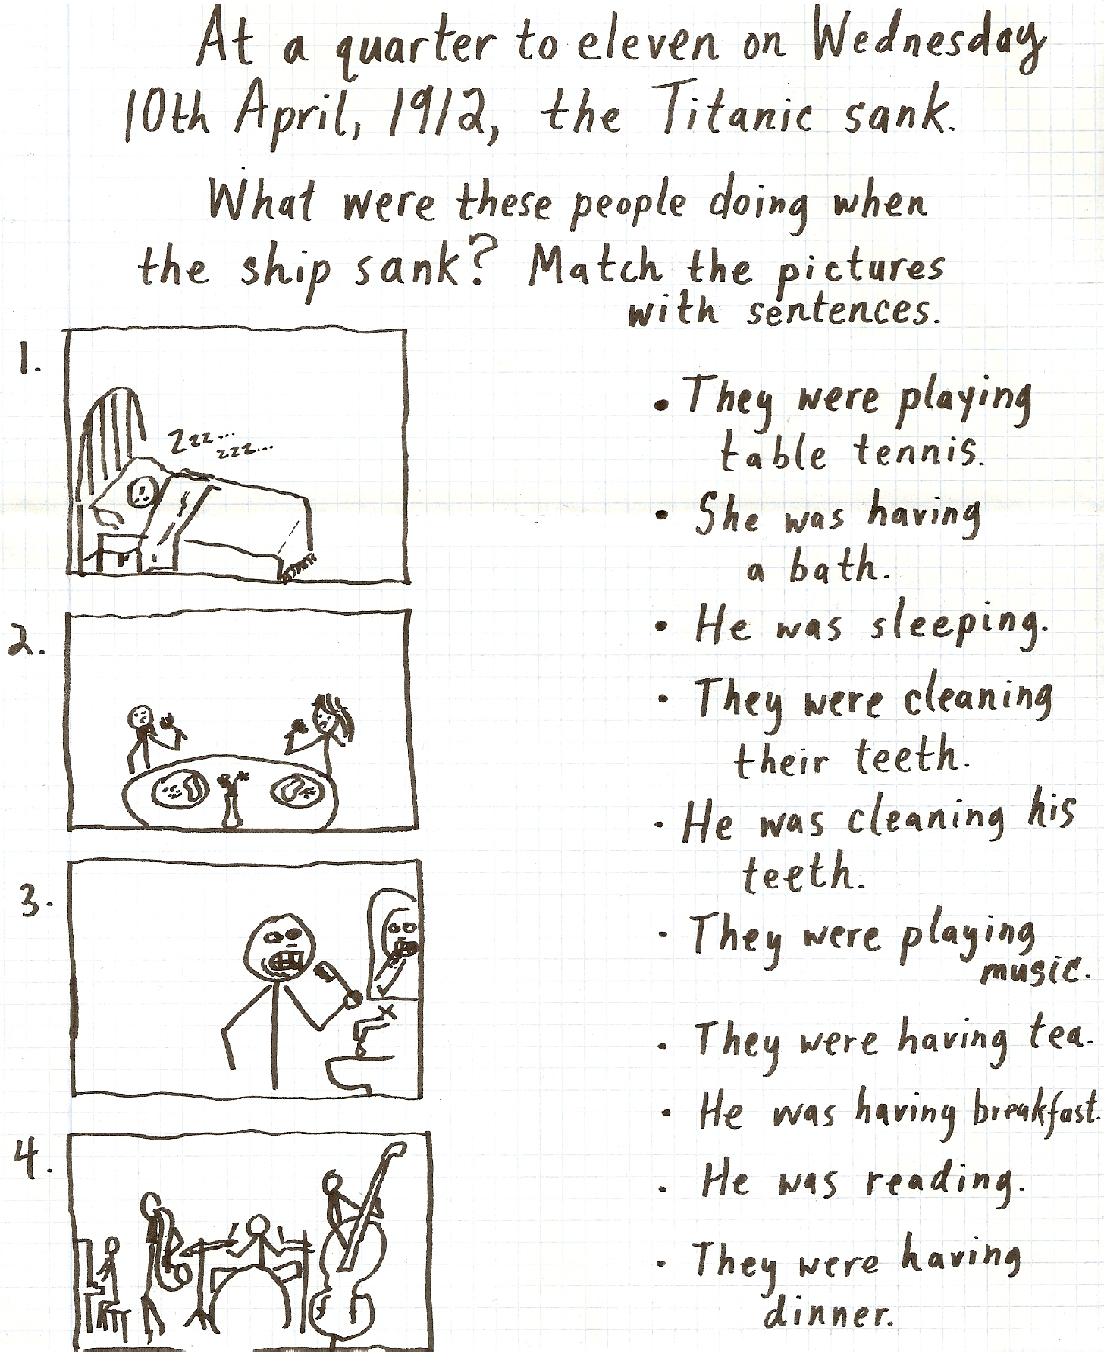 At a quarter to eleven on Wednesday
10th April, 1912, the Titanic sank.
What were these people doing when
the ship sank? Match the pictures
with sentences.
1.
Zzz... zzz...
2.
3.
4.
• They were playing
table tennis.
• She was having
a bath.
• He was sleeping.
• They were cleaning
their teeth.
• He was cleaning his
teeth.
• They were playing
music.
• They were having tea.
• He was having breakfast.
• He was reading.
• They were having
dinner.